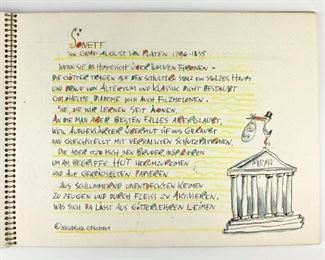 SONETT
VON GRAF AUGUST VON PLATEN 1796-1835
WENN SIE IM HIMMELLICHT ÜBER WOLKEN THRONEN -
DIE GÖTTER TRAGEN AUF DEN SCHULTERN STOLZ EIN STOLZES HAUPT
UND DRAUF VON ALTERTUM UND KLASSIK DICHT BESTAUBT
GOLDHELME, DIADEME DOCH AUCH FILZMELONEN.
SIE, DIE WIR LERNEN SEIT ÄONEN,
AN DIE MAN ABER BESTEN FALLES ABERGLAUBT,
WEIL AUFGEKLÄRTER ÜBERMUT SIE UNS GERAUBT
UND GLEICHSTELLT MIT VERKALKTEN SCHUTZPATRONEN.
DIE ABER DEN BRUDER INSPIRIEREN
UM AM BEGRIFFE HUT HERUMZURUMEN
UND AUF GEKRÄUSELTEN PAPIEREN
AUS SCHLUMMERND UNENTDECKTEN KEIMEN
ZU ZEUGEN UND DURCH FLEISS ZU AKTIVIEREN,
WAS SICH DA LÄSST AUS GÖTTERLEHREN LEIMEN
© NACHDRUCK